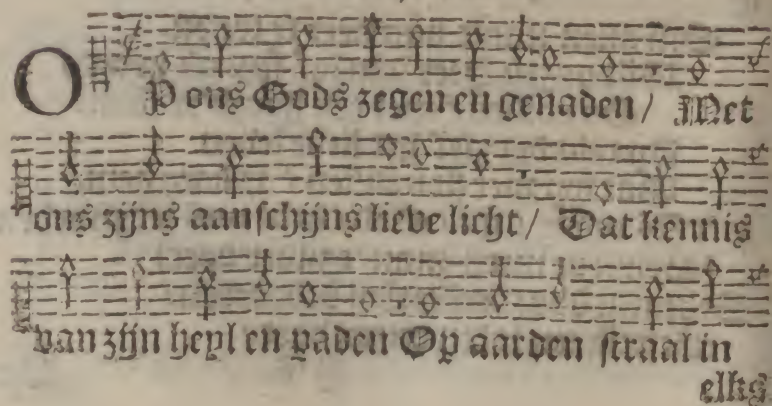 OP ons Gods zegen en genaden / Met
ons zijns aanschijns lieve licht / Dat kennis
van zijn heyl en paden Op aarden straal in
elks